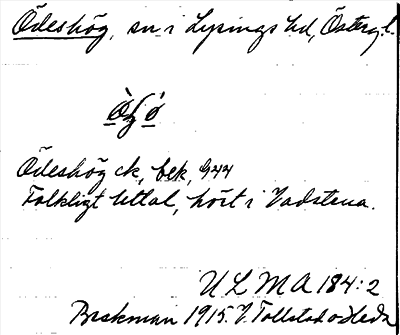 Ödeshög, sn i Lysings hd, Östergl.
Ödeshög ck, bek, 944
Folkligt uttal, hört i Vadstena.
ULMA 184:2
Beckman 1915. V. Tollstad o Heda